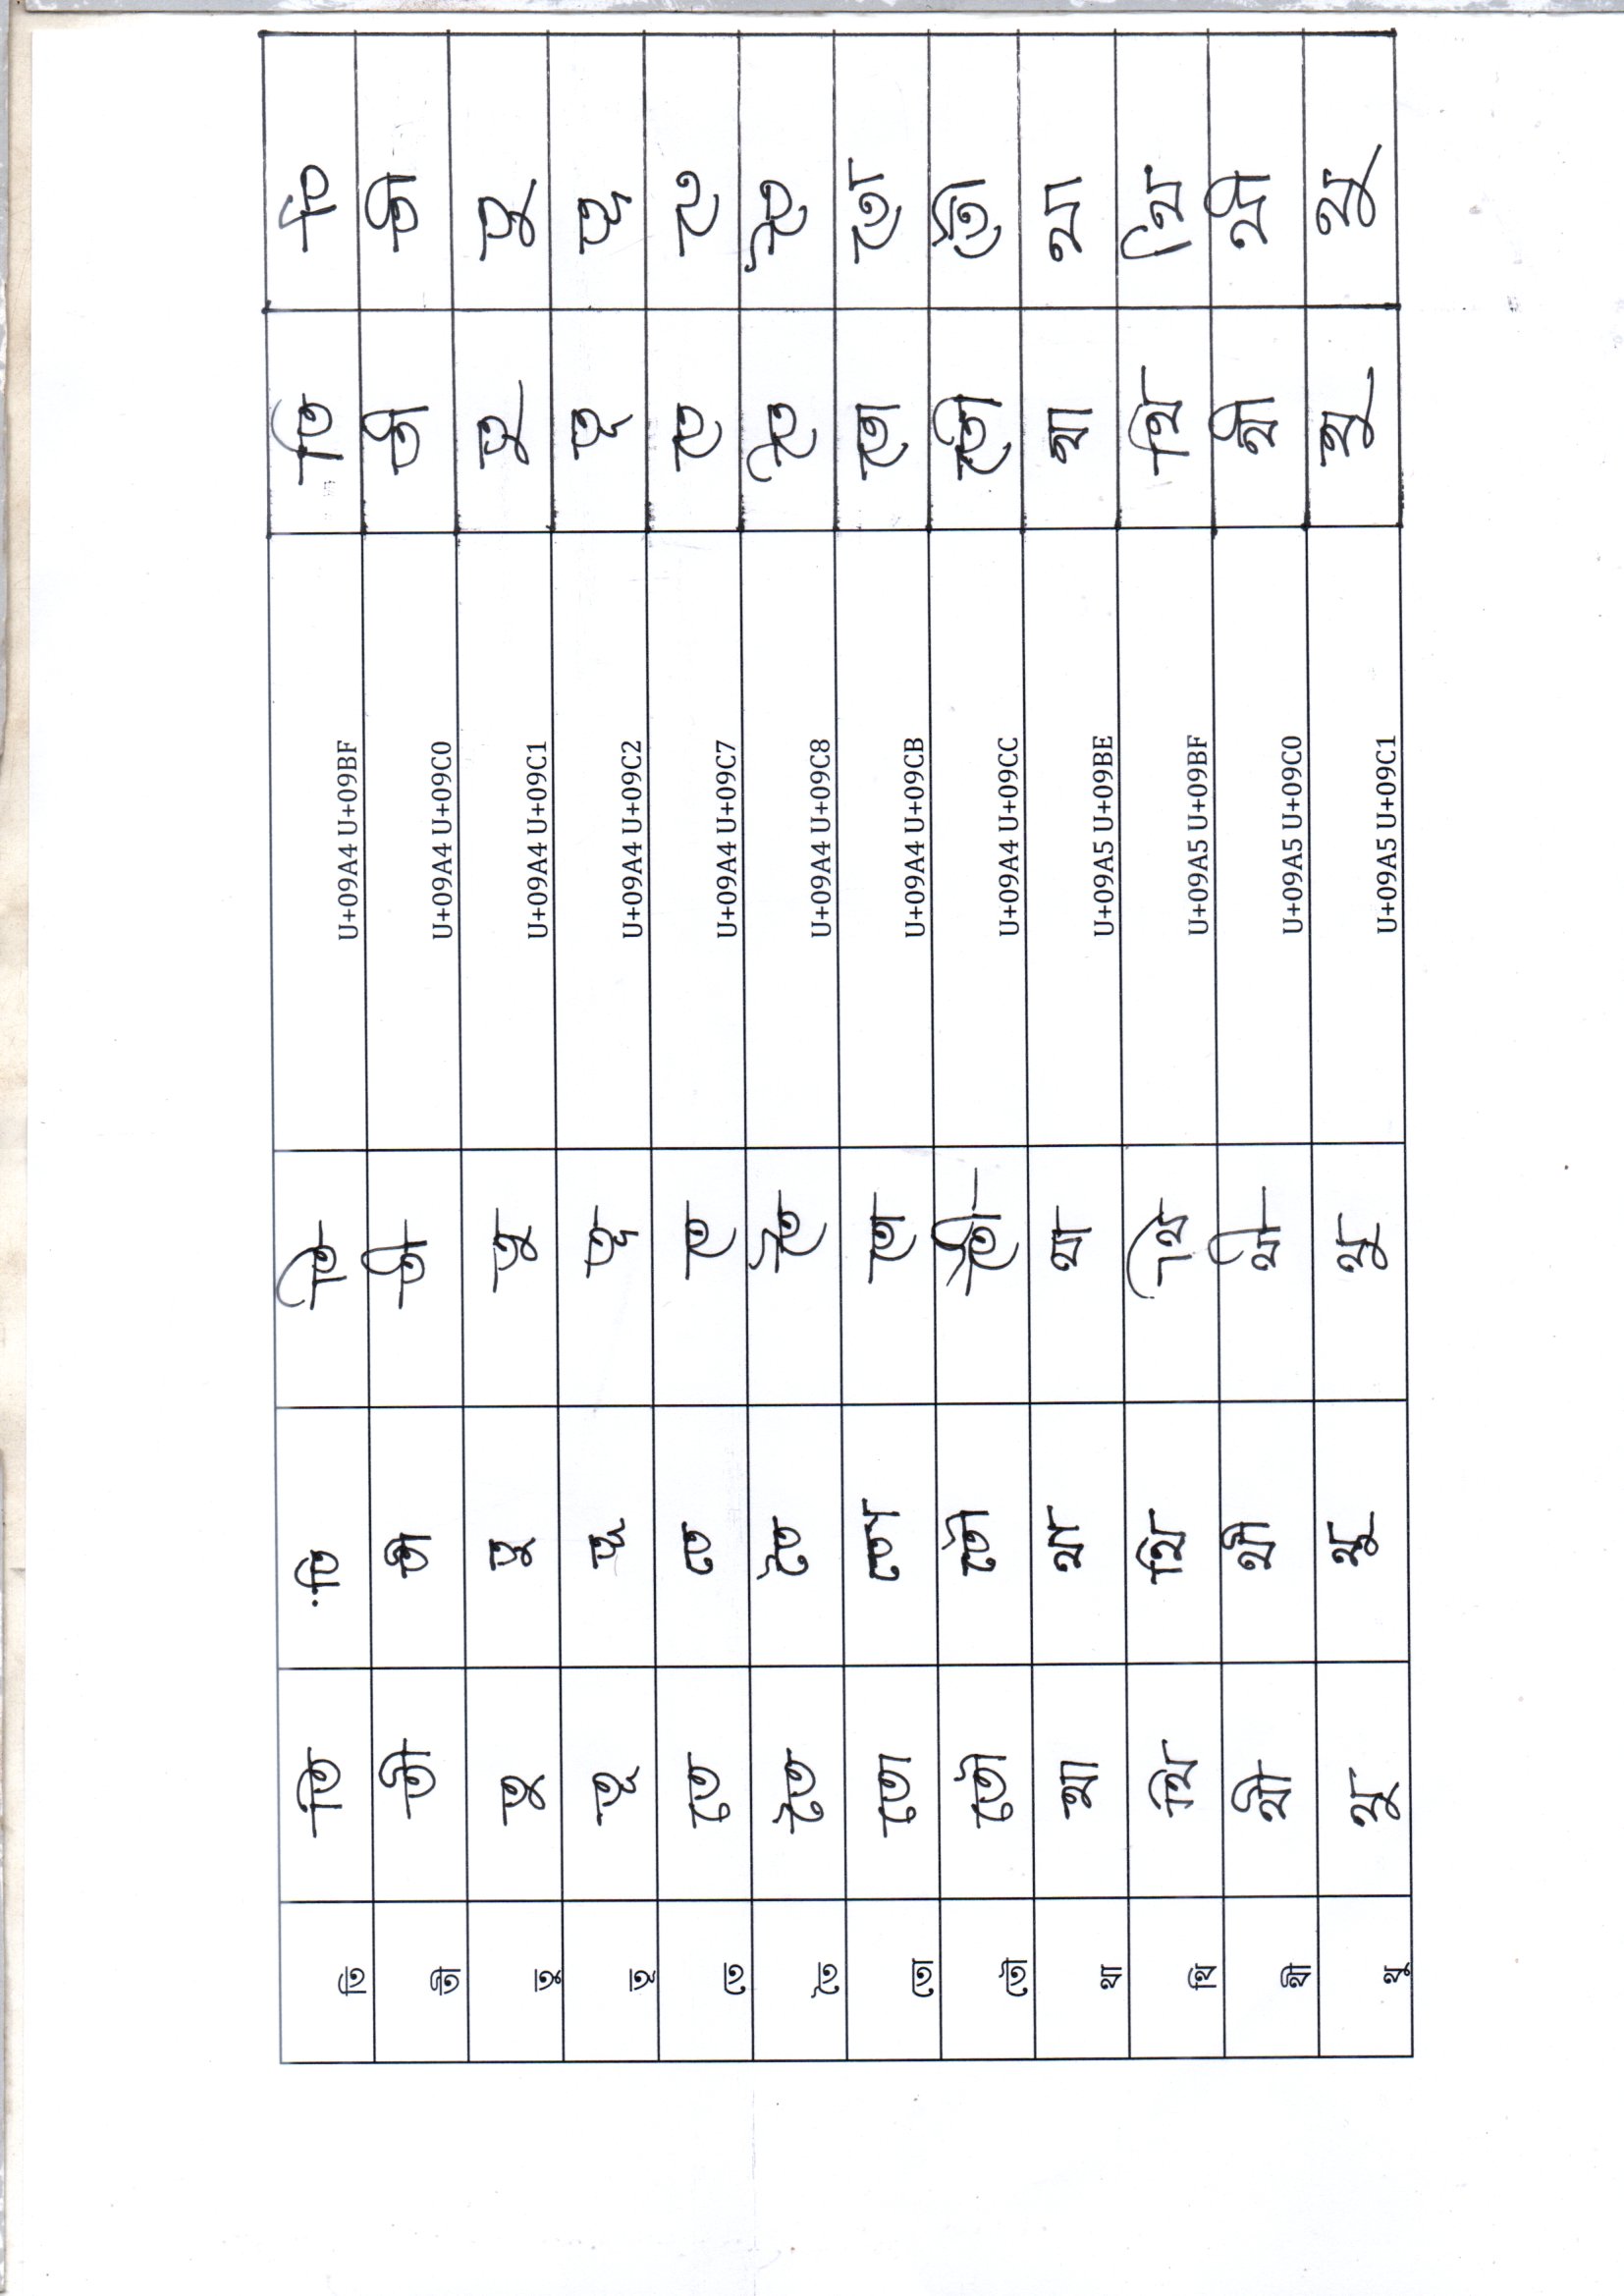 তি তি তি তি U+09A4 U+09BF তি তি
তী তী তী তী U+09A4 U+09C0 তী তী
তু তু তু তু U+09A4 U+09C1 তু তু
তূ তূ তূ তূ U+09A4 U+09C2 তূ তূ
তে তে তে তে U+09A4 U+09C7 তে তে
তৈ তৈ তৈ তৈ U+09A4 U+09C8 তৈ তৈ
তো তো তো তো U+09A4 U+09CB তো তো
তৌ তৌ তৌ তৌ U+09A4 U+09CC তৌ তৌ
থা থা থা থা U+09A5 U+09BE থা থা
থি থি থি থি U+09A5 U+09BF থি থি
থী থী থী থী U+09A5 U+09C0 থী থী
থু থু থু থু U+09A5 U+09C1 থু থু